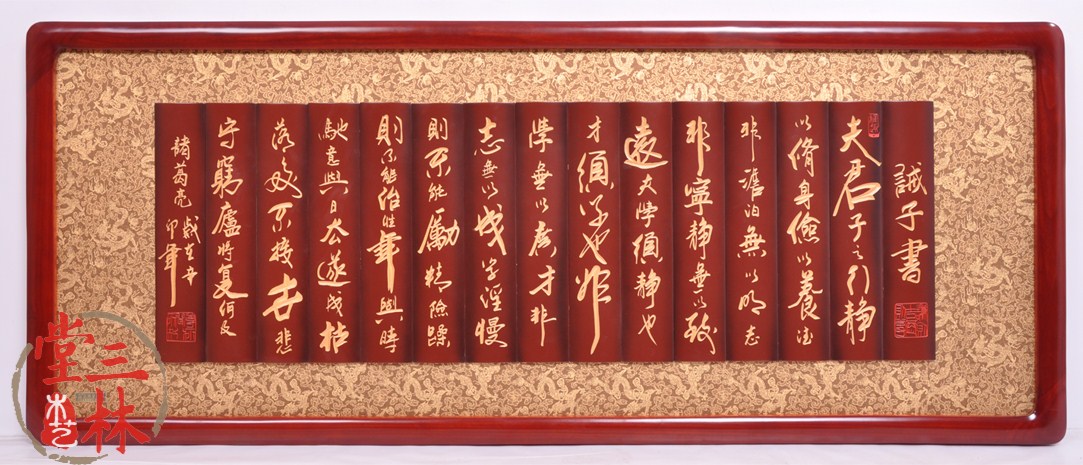 誡子書
夫君子之行静
以脩身儉以養德
非澹泊無以明志
非寧静無以致
遠夫学須静也
才須学也非
學無以廣才非
志無以成学淫慢
則不能勵精險躁
則不能治性年與時
馳意與日去遂成枯
落多不接世悲
守窮廬將复何及
諸葛亮
歲在辛
卯年
三林堂
木艺